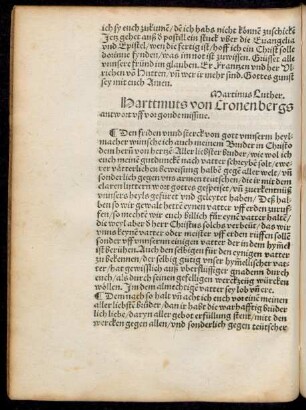 ich sy euch zukumē/ dē ich habs nicht können zuschickē
Jetz geher auß ó postill ein stuck vber die Euangelia
vnd Epistel/ wen die fertig ist/ hoff ich ein Christ solle
doinne fynden/ was im not ist zu wissen. Grüsset alle
vnsere fründ im glauben. Er. Frantzen vnd her Vl
richen vō Hutten. vñ wer ir mehr sind. Gottes gunst
sey mit euch Amen.
Martinus Luther.
Harttmuts von Cronenbergs
antwort vff vorgonde missiue.
¶ Den friden vnnd sterck von gott vnnserm heyl
macher wünsche ich auch meinem Bruder in Christo
dem herñ von hertzē Aller liebster brüder/ wie wol ich
euch meinē gutdunckē nach vatter schreybē solt/ ewer
vätterlichen bewysung halbē gegē aller welt/ vñ
sonderlich gegen vns armen teütschen/ die ir mit dem
claren luttern wort gottes gespeiset/ vñ zu erkēntnüß
vnsers heyls gefüret vnd geleytet haben/ Deß hal
ben so wir gewalt hettē eynen vatter vff erden zuruf
fen/ so mechtē wir euch billich für eynē vatter haltē/
die weyl aber d herr Christus solchs verbeüt/ das wir
vnns keynē vatter oder meister vff erden rüffen sollē
sonder vff vnserm einigen vatter der in dem hymel
ist berüben. Auch den selbigen für den eynigen vatter
zu bekennen/ der selbig gütig vnser hymelischer vat-
ter/ hat gewißlich auß vberflüssiger gnaden durch
euch/ als durch seinen gefelligen werckzeüg würcken
wöllen. Jn dem almechtigē vatter sey lob vñ ere.
¶ Dem nach so halt vñ acht ich euch vor einē meinen
aller liebstē brüder/ dan ir habē die warhafftig brüder
lich liebe/ daryn aller gebot erfüllung stent/ mit den
wercken gegen allen/ vnd sonderlich gegen teütscher